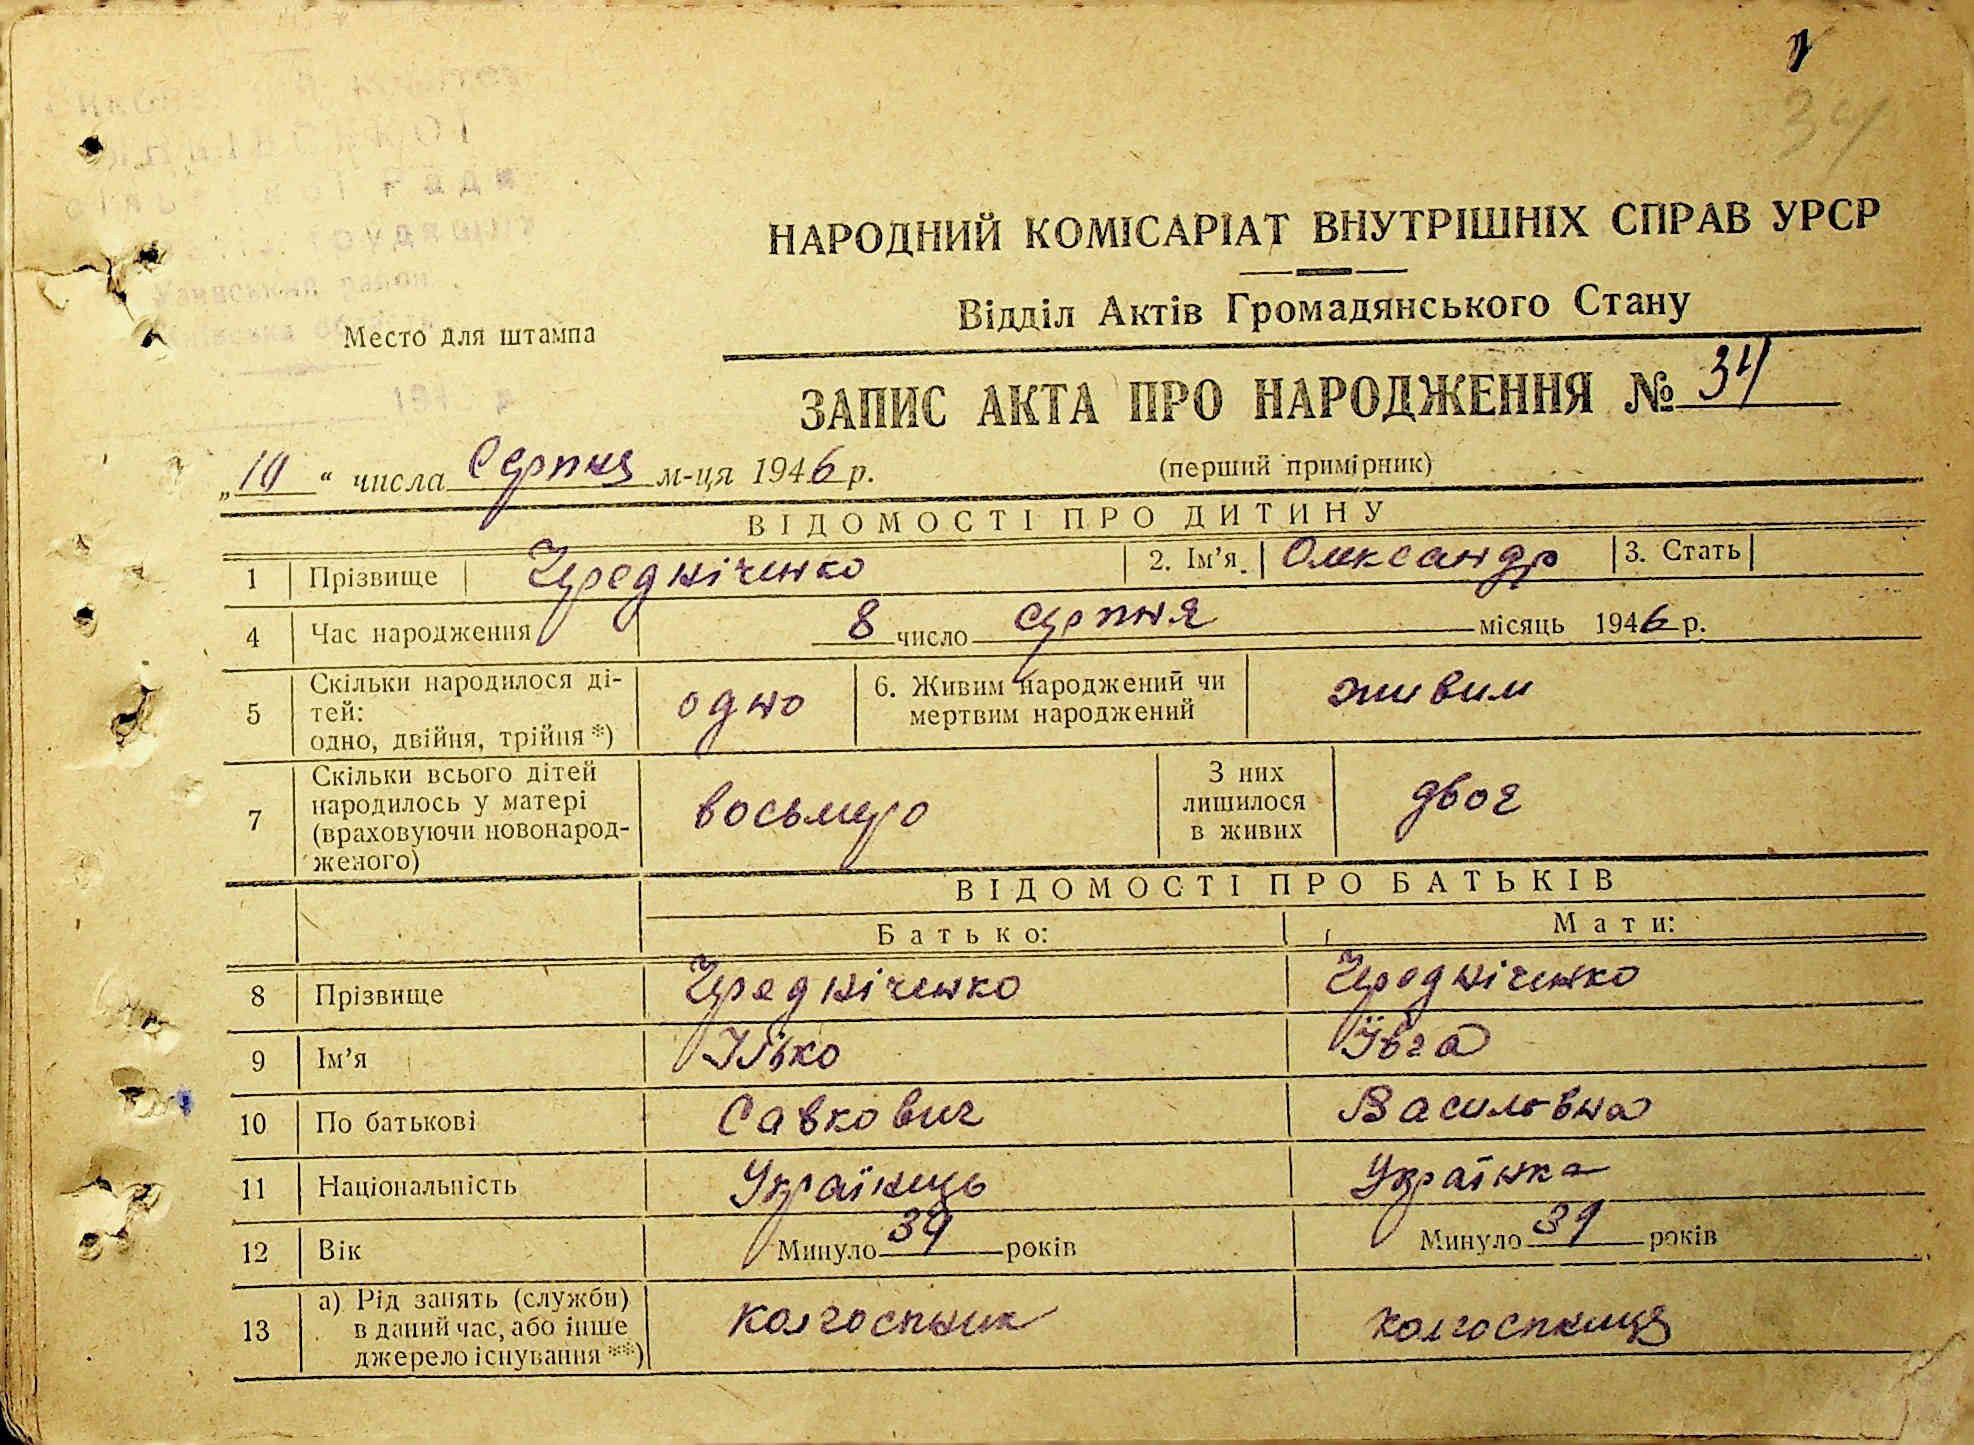 34
НАРОДНИЙ КОМІСАРІАТ ВНУТРІШНІХ СПРАВ УРСР
Відділ Актів Громадянського Стану
Место для штампа
ЗАПИС АКТА ПРО НАРОДЖЕННЯ № 34
„10“ числа Серпня м-ця 1946 р.
(перший примірник)
ВІДОМОСТІ ПРО ДИТИНУ
1 Прізвище Чередніченко 2. Ім’я Олександр 3. Стать
4 Час народження 8 число серпня місяць 1946 р.
5 Скільки народилося ді-
тей:
одно, двійня, трійня*) одно 6. Живим народжений чи
мертвим народжений живим
7 Скільки всього дітей
народилось у матері
(враховуючи новонарод-
женого) восьмеро З них
лишилося
в живих двоє
ВІДОМОСТІ ПРО БАТЬКІВ
Батько: Мати:
8 Прізвище Чередніченко Чередніченко
9 Ім’я Ілько Ївга
10 По батькові Савкович Василовна
11 Національність Українець Українка
12 Вік Минуло 39 років Минуло 39 років
13 а) Рід занять (служби)
в даний час, або інше
джерело існування**) колгоспник колгоспниця